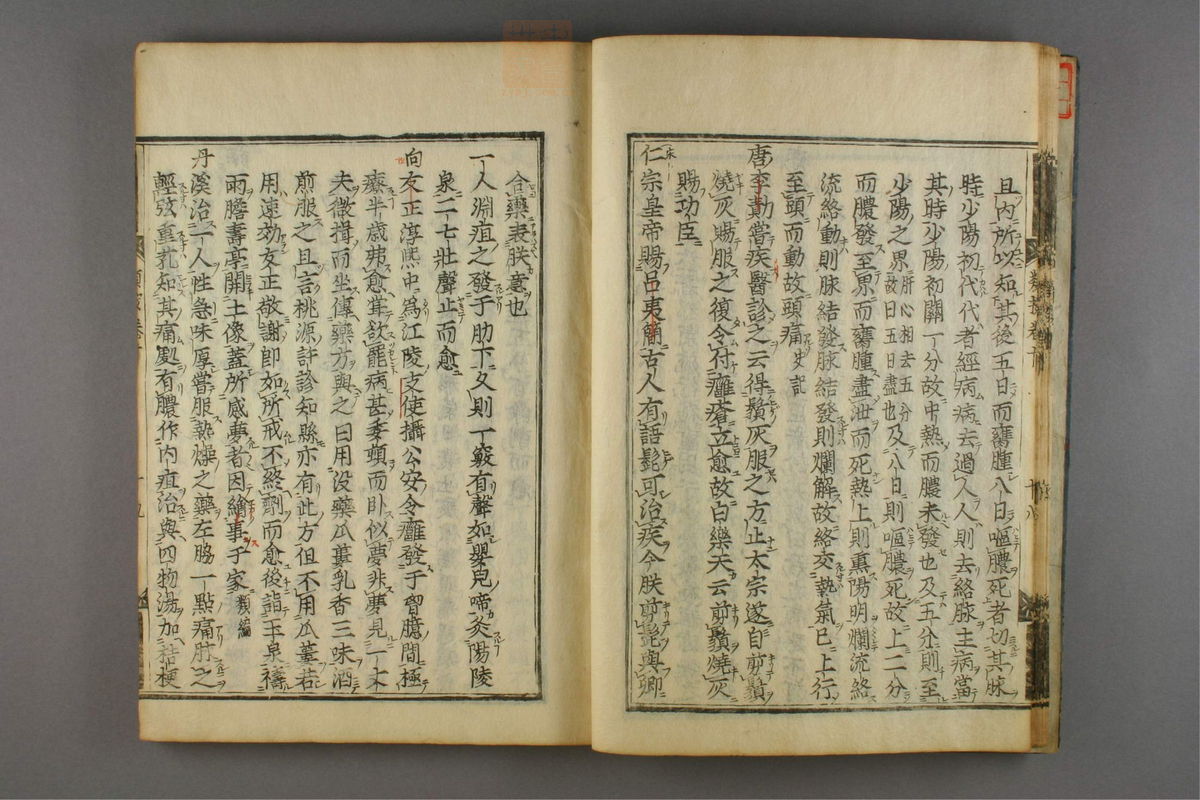 且内所以知其後五日而癰腫八日嘔膿死者切其脉
時少陽初代代者經病病去過人人則去絡脉主病當
其時少陽初關一分故中熱而膿未發也及五分則至
少陽之界肝心相去五分故曰五日盡也及八日則嘔膿死故上二分
而膿發至界而癰腫盡泄而死熱上則熏陽明爛流絡
流絡動則脉結發脉結發則爛解故絡交熱氣已上行
至頭而動故頭痛史記
唐李勣嘗疾醫診之云得鬚灰服之方止太宗遂自剪鬚
燒灰賜服之復令付癰瘡立愈故白樂天云剪鬚燒灰
賜功臣
仁宗皇帝賜呂夷簡古人有語髭可治疾今朕剪髭與卿
合藥表朕意也
一人淵疽之發于肋下久則一竅有聲如嬰兒啼灸陽陵
泉二七壯聲止而愈
向友正淳熙中爲江陵支使攝公安令癰發于胷臆間極
療半歳弗愈嘗欲罷病甚委頓而卧似夢非夢見一丈
夫微揖而坐傳藥方與之曰用没藥瓜蔞乳香三味酒
煎服之且言桃源許診知縣亦有此方但不用瓜蔞若
用速効友正敬謝即如所戒不終劑而愈後詣玉泉禱
雨瞻壽亭關王像蓋所感夢者因繪事于家類編
丹溪治一人性急味厚嘗服熱燥之藥左脇一點痛肘之
輕弦重芤知其痛處有膿作内疽治與四物湯加桔梗